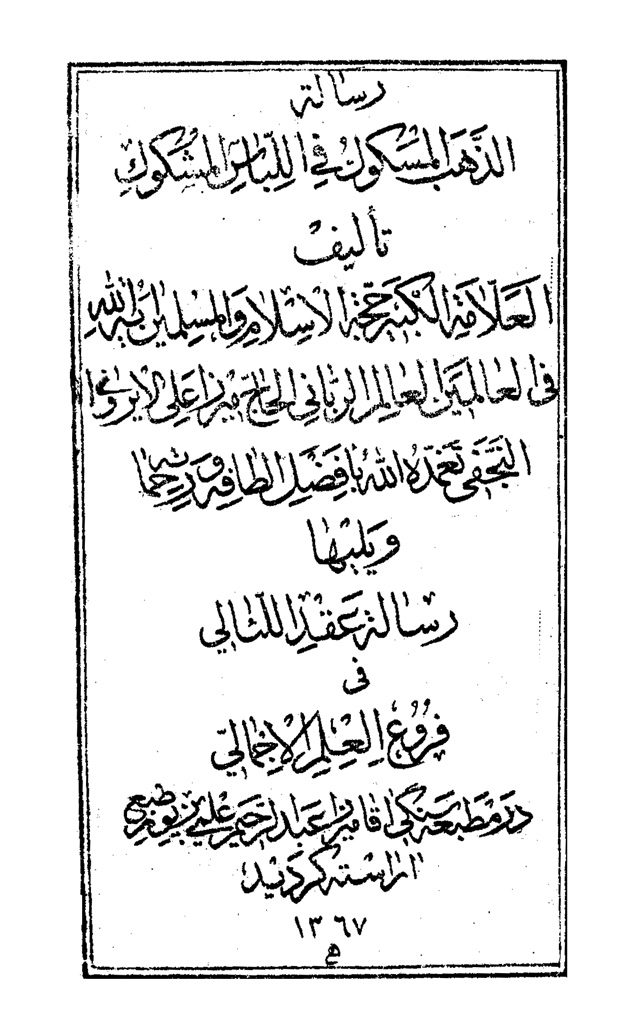 رسالة
الذَّهَبِ المَسكوكِ في اللِّباسِ المَشكوكِ
تأليف
العَلّامةِ الكبيرِ حجّةِ الإسلامِ والمسلمين آيةِ اللهِ
في العالَمينَ العالِمِ الربّاني الحاج ميرزا علي الايرواني
النجفي تغمّدهُ اللهُ بأفضلِ الطافِهِ ورحماته
ويليها
رسالة عَقدِ اللئالي
في
فروعِ العِلمِ الاِجمالي
در مطبعه سنگی اقا میرزا عبد الرحیم علمی بزیور طبع
اراسته گردید
١٣٦٧
ه